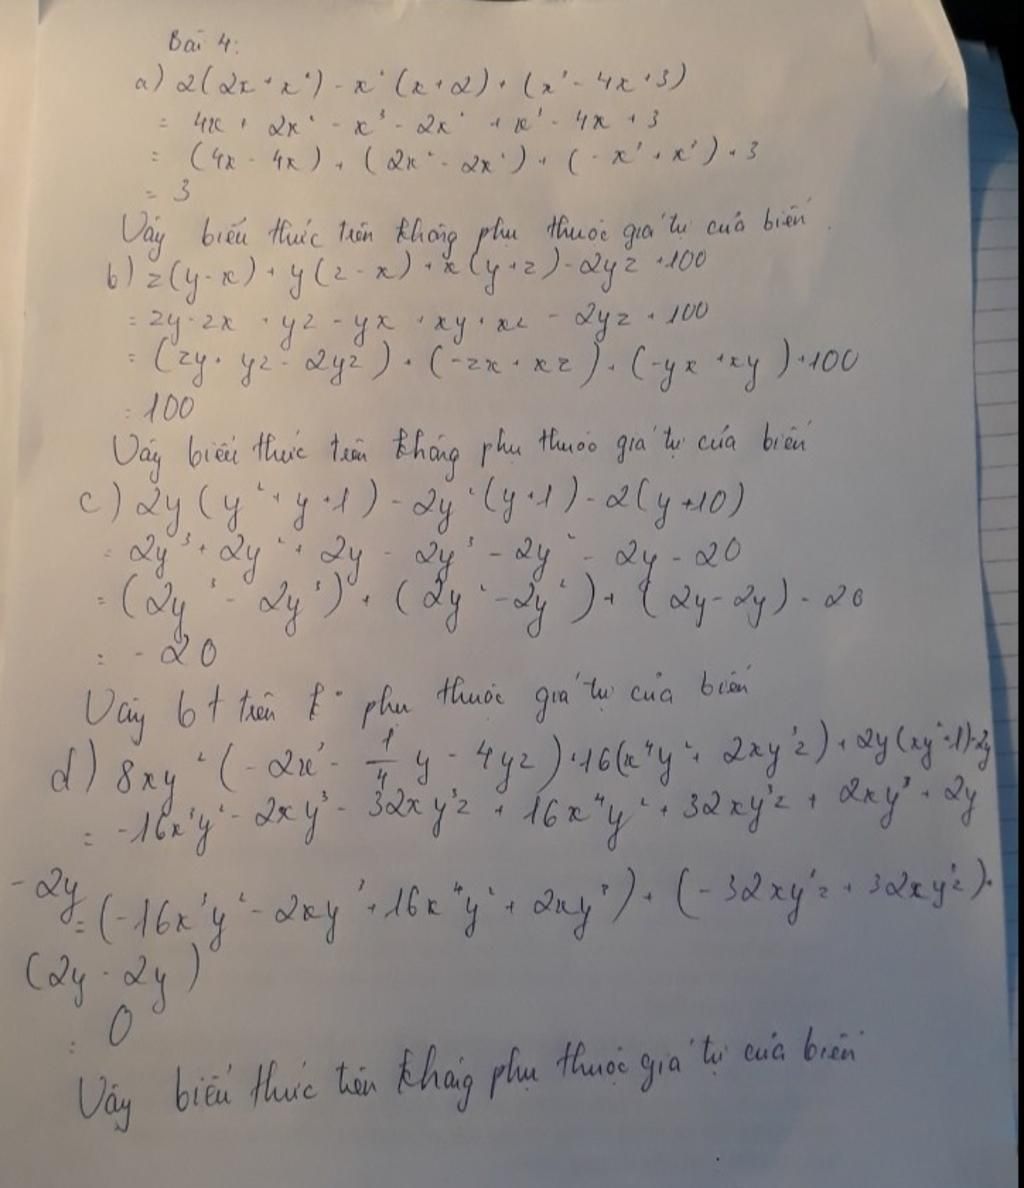 Bài 4:
a) 2(2x + x²) - x²(x+2) + (x³ - 4x + 3)
= 4x + 2x² - x³ - 2x² + x³ - 4x + 3
= (4x - 4x) + (2x² - 2x²) + (-x³ + x³) + 3
= 3
Vậy biểu thức trên không phụ thuộc giá trị của biến.
b) z(y-x) + y(z-x) + x(y+z) - 2yz + 100
= zy - zx + yz - yx + xy + xz - 2yz + 100
= (zy + yz - 2yz) + (-zx + xz) + (-yx + xy) + 100
= 100
Vậy biểu thức trên không phụ thuộc giá trị của biến
c) 2y(y² + y + 1) - 2y²(y+1) - 2(y+10)
= 2y³ + 2y² + 2y - 2y³ - 2y² - 2y - 20
= (2y³ - 2y³) + (2y² - 2y²) + (2y - 2y) - 20
= -20
Vậy bt trên k° phụ thuộc giá trị của biến
d) 8xy²(-2x³ - 1/4 y - 4yz) + 16(x⁴y² + 2xy³z) + 2y(xy²+1) - 2y
= -16x³y² - 2xy³ - 32xy³z + 16x⁴y² + 32xy³z + 2xy³ + 2y
- 2y
= (-16x³y² - 2xy³ + 16x⁴y² + 2xy³) + (-32xy³z + 32xy³z) +
(2y - 2y)
= 0
Vậy biểu thức trên không phụ thuộc giá trị của biến